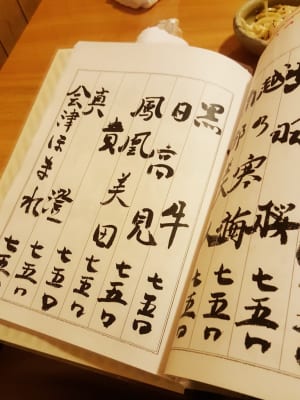 出羽桜 七五〇
越乃寒梅 七五〇
黒牛 七五〇
日高見 七五〇
鳳凰美田 七五〇
貴 七五〇
真澄 七五〇
会津ほまれ 七五〇